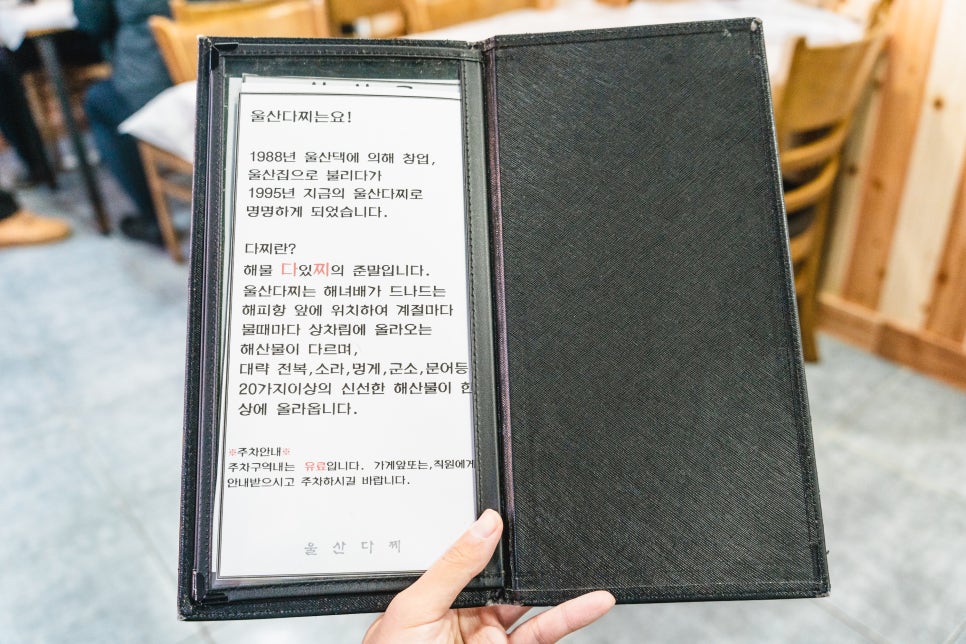 울산다찌는요!
1988년 울산댁에 의해 창업,
울산집으로 불리다가
1995년 지금의 울산다찌로
명명하게 되었습니다.
다찌란?
해물 다있찌의 준말입니다.
울산다찌는 해녀배가 드나드는
해피항 앞에 위치하여 계절마다
물때마다 상차림에 올라오는
해산물이 다르며,
대략 전복,소라,멍게,군소,문어등
20가지이상의 신선한 해산물이 한
상에 올라옵니다.
※주차안내※
주차구역내는 유료입니다. 가게앞또는,직원에게
안내받으시고 주차하시길 바랍니다.
울산다찌